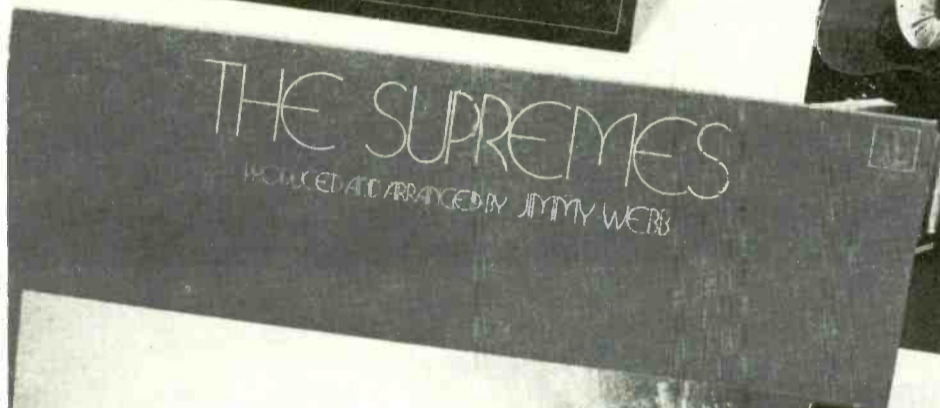 THE SUPREMES
PRODUCED AND ARRANGED BY JIMMY WEBB